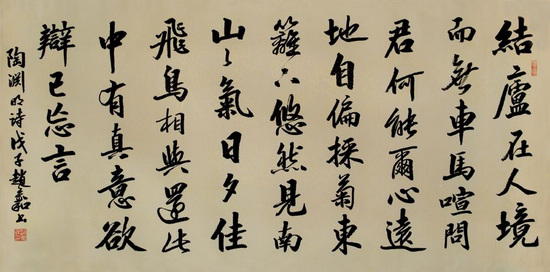 結廬在人境
而無車馬喧問
君何能爾心遠
地自偏採菊東
籬下悠然見南
山〻氣日夕佳
飛鳥相與還此
中有真意欲
辯已忘言
陶淵明诗戊子趙书